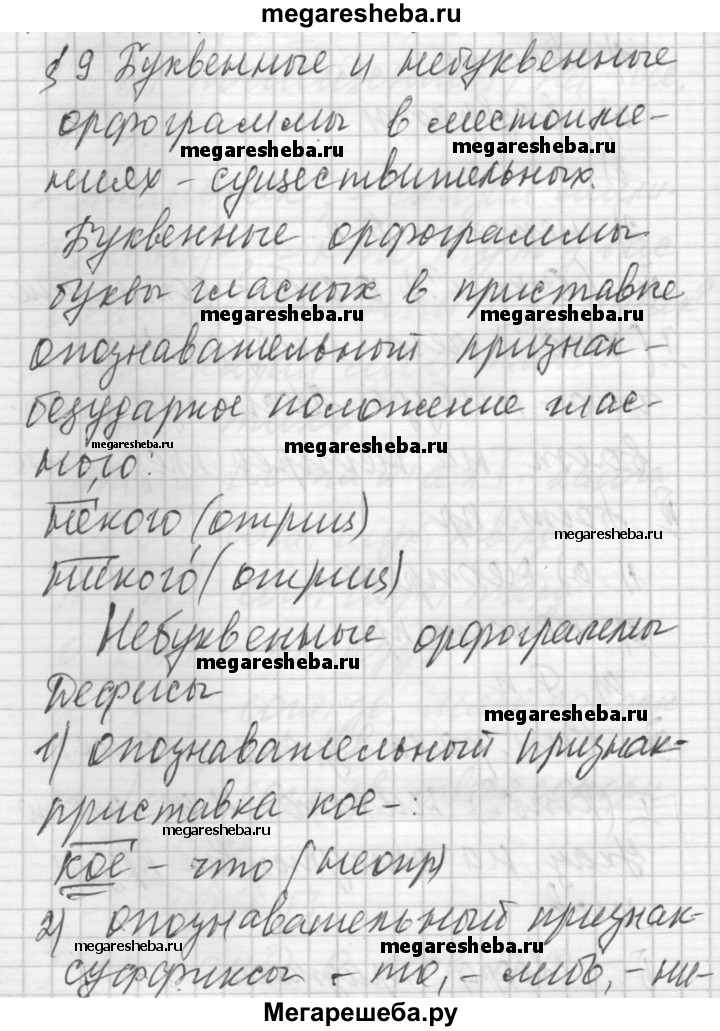 megaresheba.ru
§ 9 Буквенные и небуквенные
орфограммы в местоиме-
megaresheba.ru megaresheba.ru
ниях - существительных.
Буквенные орфограммы
буквы гласных в приставке
megaresheba.ru megaresheba.ru
опознавательный признак -
безударное положение глас-
megaresheba.ru megaresheba.ru
ного:
некого (отриц)
megaresheba.ru
никого (отриц)
Небуквенные орфограммы
megaresheba.ru
Дефисы
megaresheba.ru
1) опознавательный признак-
приставка кое-:
megaresheba.ru
кое - что (неопр)
2) опознавательный признак-
megaresheba.ru megaresheba.ru
суффиксы - то, - либо, - ни-
Мегарешеба.ру